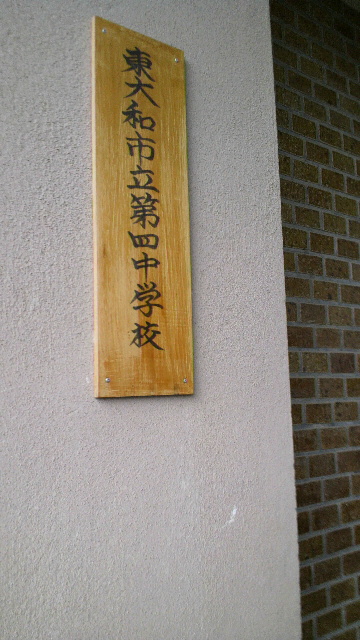 東大和市立第四中学校